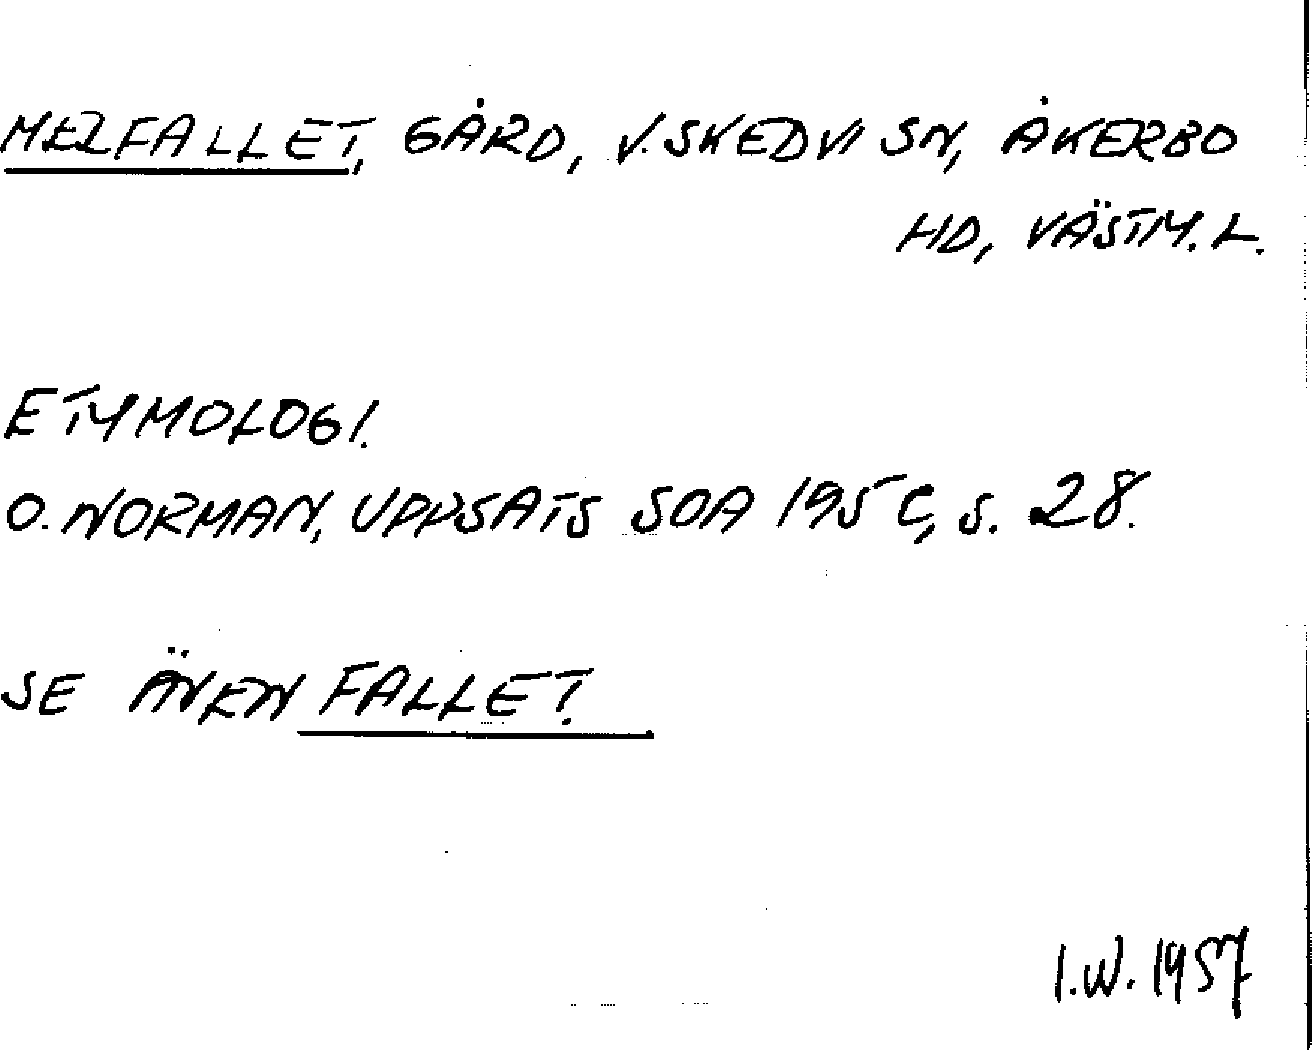 GÅRD, V. SKEDVI SN, ÅKERBO
HD, VÄSTM. L.
ETYMOLOGI.
O. NORMAN, UPPSATS SOA 195 C, s. 28.
SE ÄVEN FALLET.
I.W. 1957